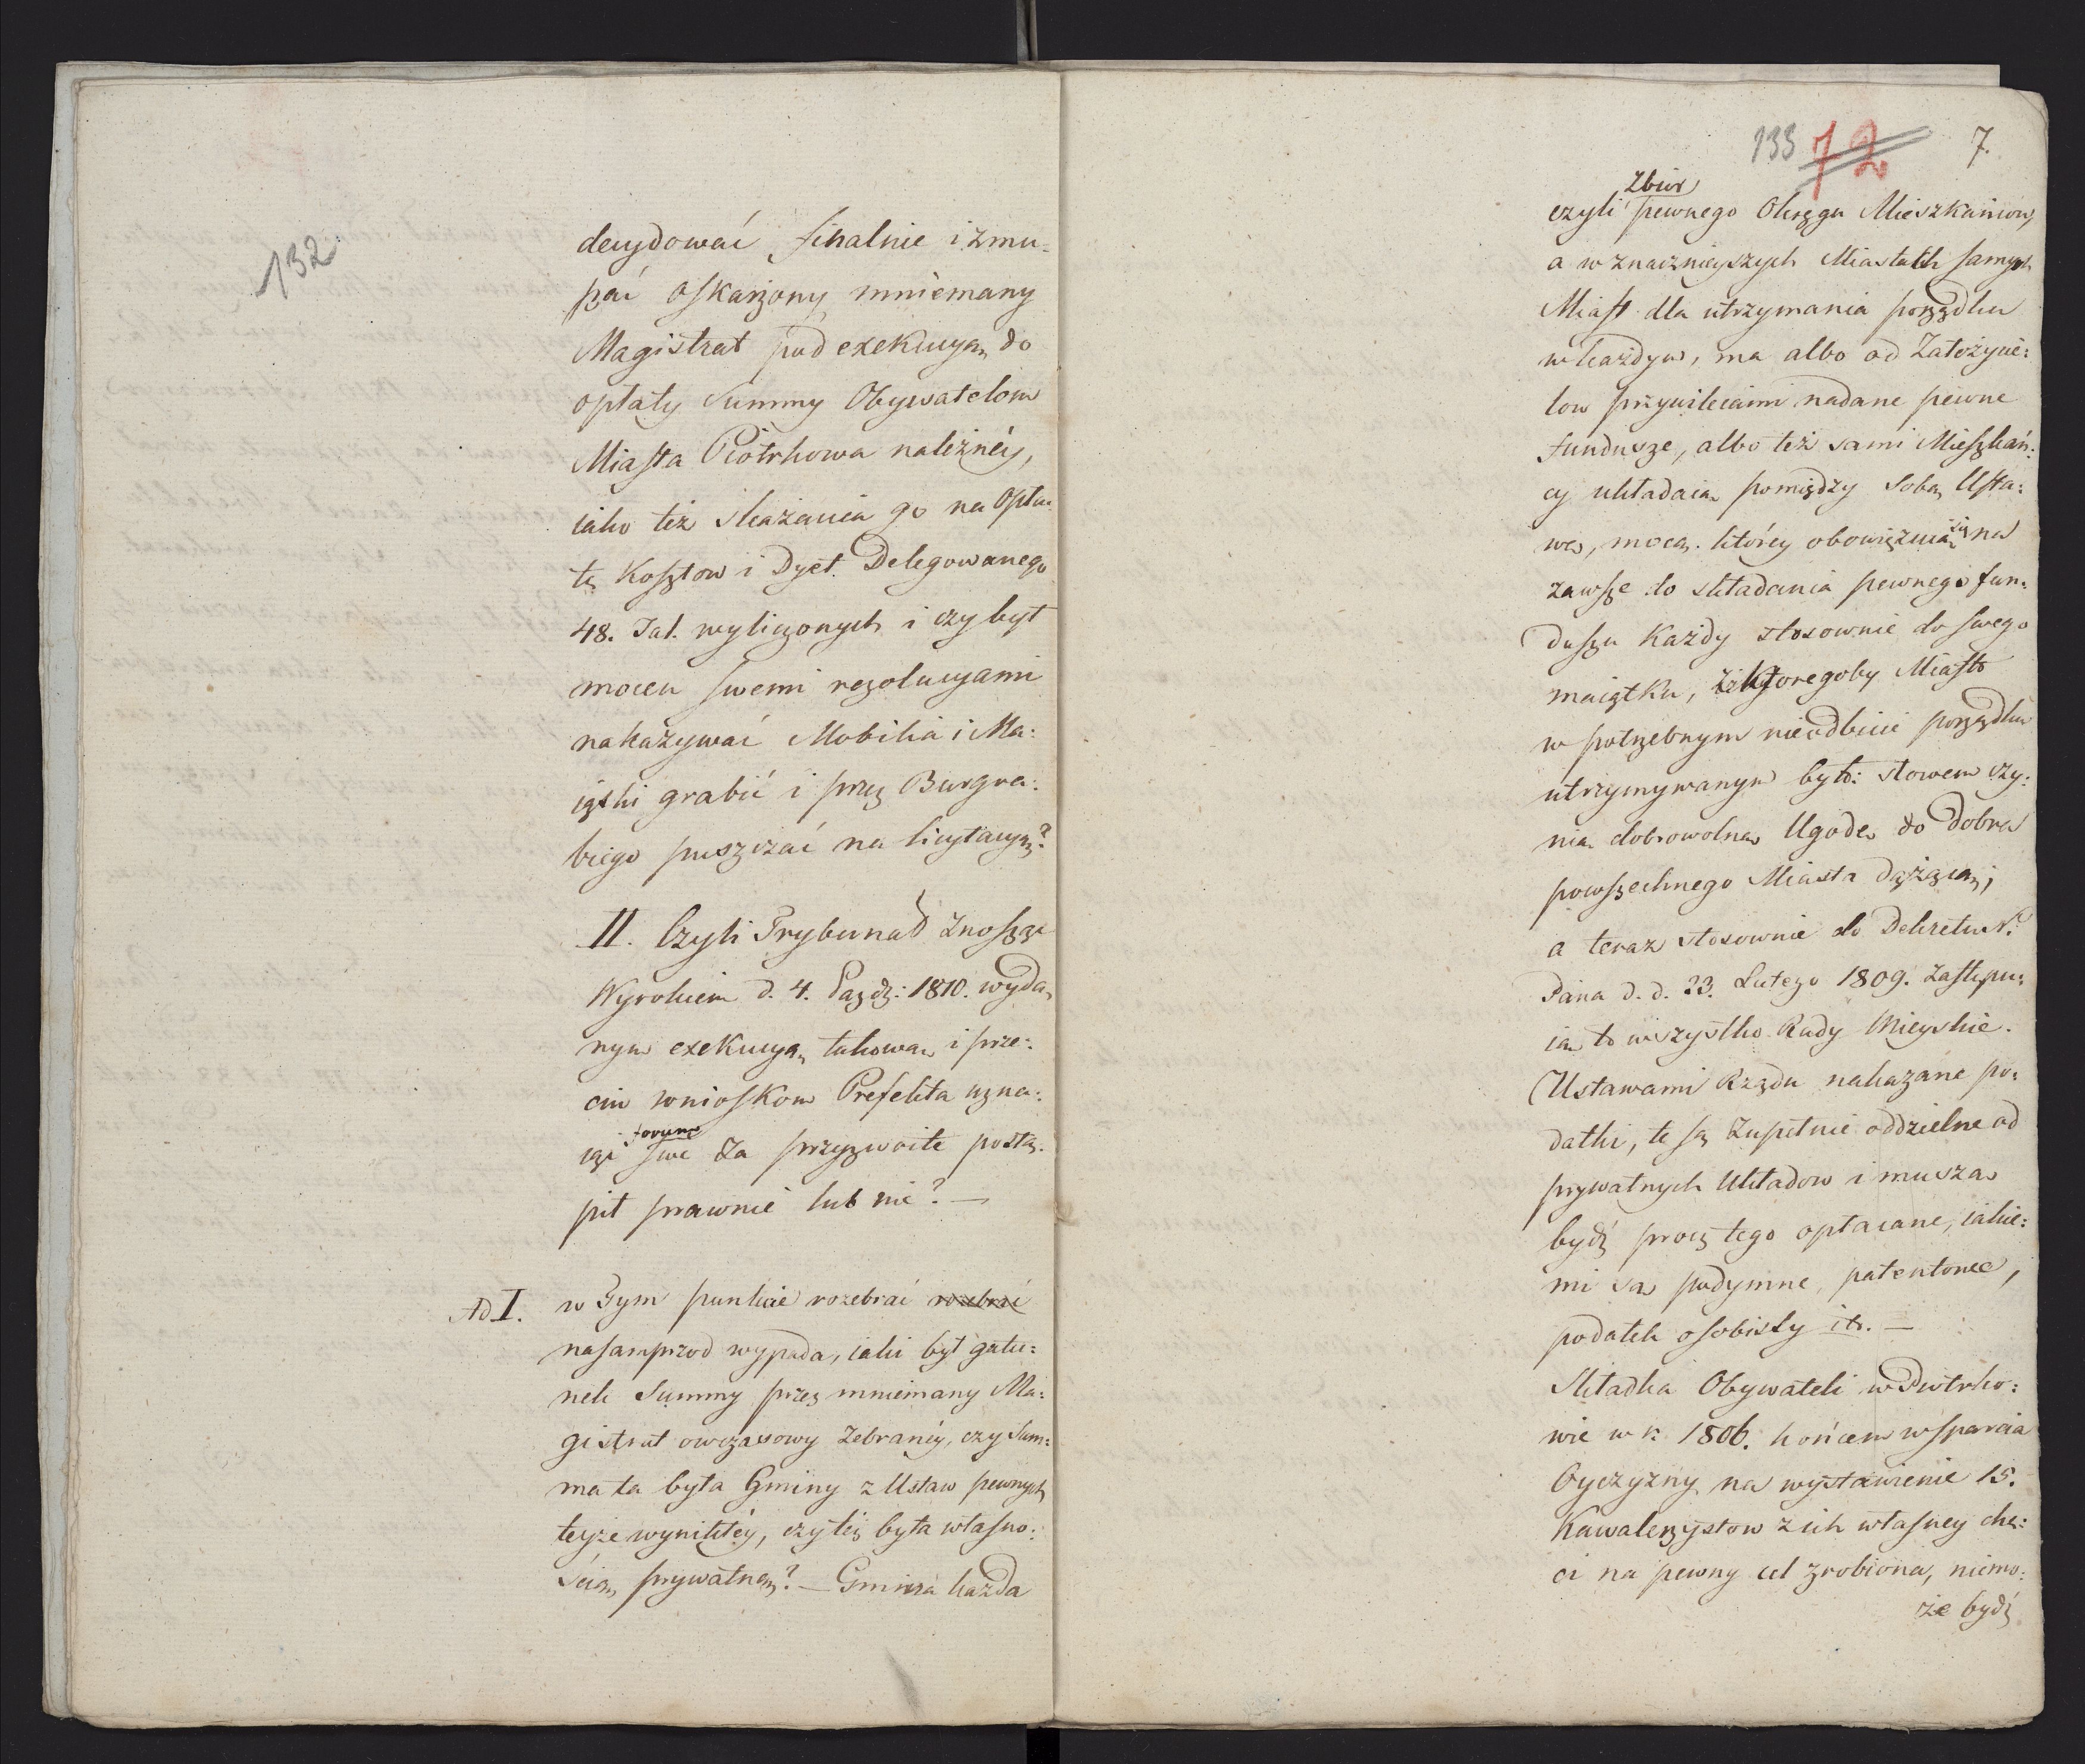 132
decydować finalnie i zmu-
szać oskarżony mniemany
Magistrat pod exekucyą do
opłaty Summy Obywatelom
Miasta Piotrkowa należnéy,
iako też skazania go na opła-
tę kosztow i Dyet. Delegowanego
48. Tal. wyliczonych i czy był
mocen swemi rezolucyami
nakazywać Mobilia i Ma:
iątki grabić i przez Burgra:
biego puszczać na licytacyą?
II. Czyli Trybunał znosząc
Wyrokiem d. 4. Paźdz: 1810. wyda-
nym exekucyą takową i prze:
ciw wnioskom Prefekta uzna:
iąc forum swe za przyzwoite postą-
pił prawnie lub nie? —
Ad I. w Tym punkcie rozebrać rozebrać
nasamprzod wypada, iaki był gatu:
nek Summy przez mniemany Ma:
gistrat owczasowy zebranéy, czy Sum:
ma ta była Gminy z Ustaw pewnych
teyże wynikłéy, czyliż była własno:
ścią prywatną? — Gmina każda
133 72 7.
czyli zbior pewnego Okręgu Mieszkańcow,
a w znacznieyszych Miastach samych
Miast dla utrzymania porządku
w każdym, ma albo od Założycie:
low przywileiami nadane pewne
fundusze, albo też sami Mieszkań:
cy układaią pomiędzy sobą Usta:
wę, mocą którey obowiązuią się na
zawsze do składania pewnego fun:
duszu każdy stosownie do swego
maiątku, z ktoregoby Miasto
w potrzebnym nieodbicie porządku
utrzymywanym było: słowem czy:
nią dobrowolną Ugodę do dobra
powszechnego Miasta dążącą;
a teraz stosownie do Dekretu N.
Pana d. d. 23. Lutego 1809. zastępu:
ią to wszystko Rady Mieyskie.
Ustawami Rządu nakazane po:
datki, te są zupełnie oddzielne od
prywatnych Układow i muszą
bydź procz tego opłacane, iakie:
mi są podymne, patentowe,
podatek osobisty itd. —
Składka Obywateli w Piotrko:
wie w r. 1806. końcem wsparcia
Oyczyzny na wystawienie 15.
Kawalerzystow z ich własney chę:
ci na pewny cel zrobiona, niemo:
że bydź